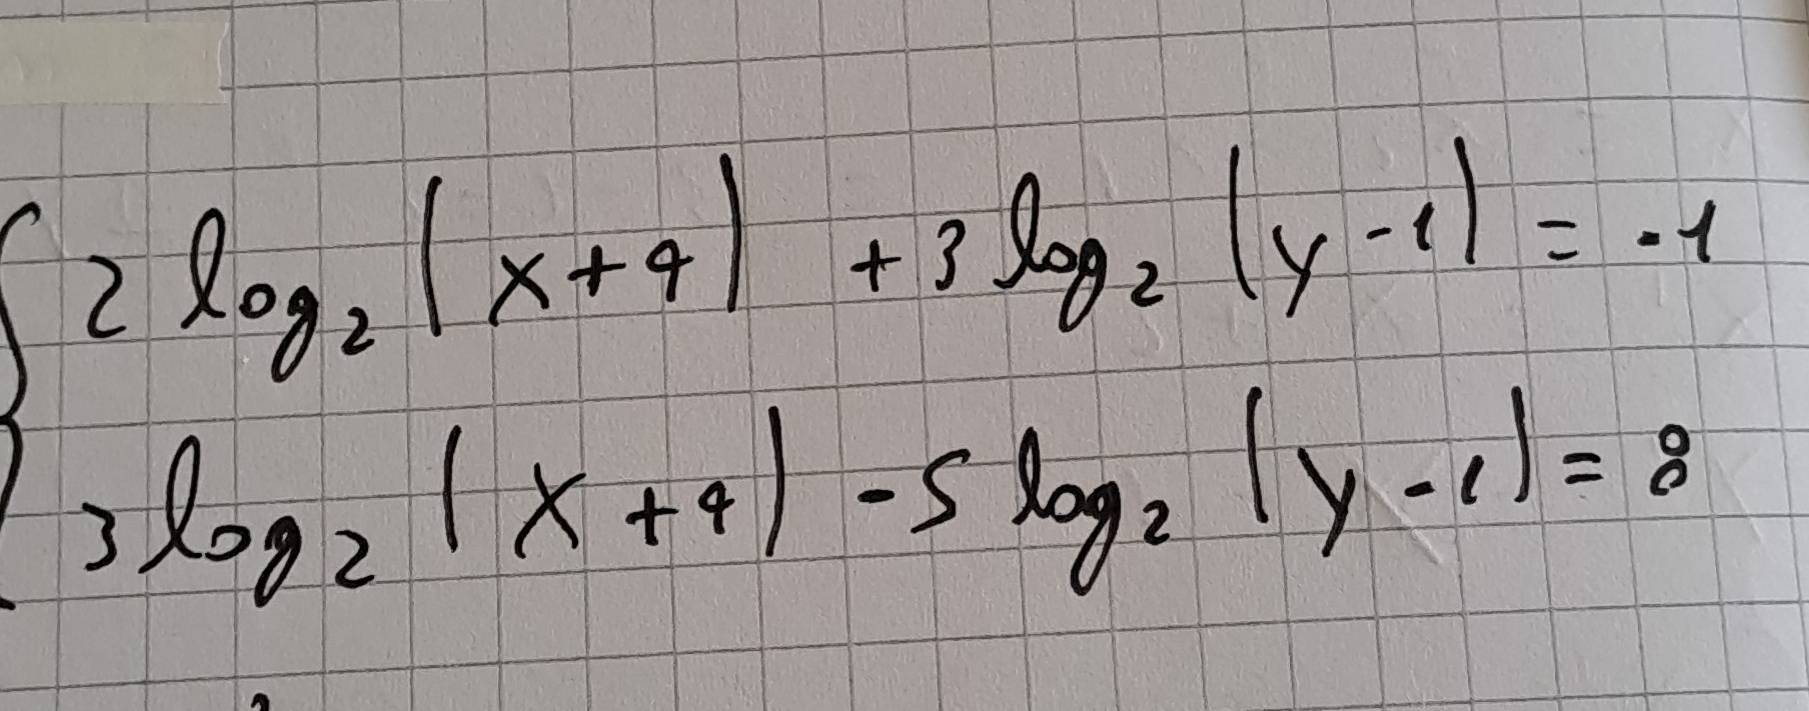 2 log₂ (x+4) + 3 log₂ (y-1) = -1
3 log₂ (x+4) - 5 log₂ (y-1) = 8